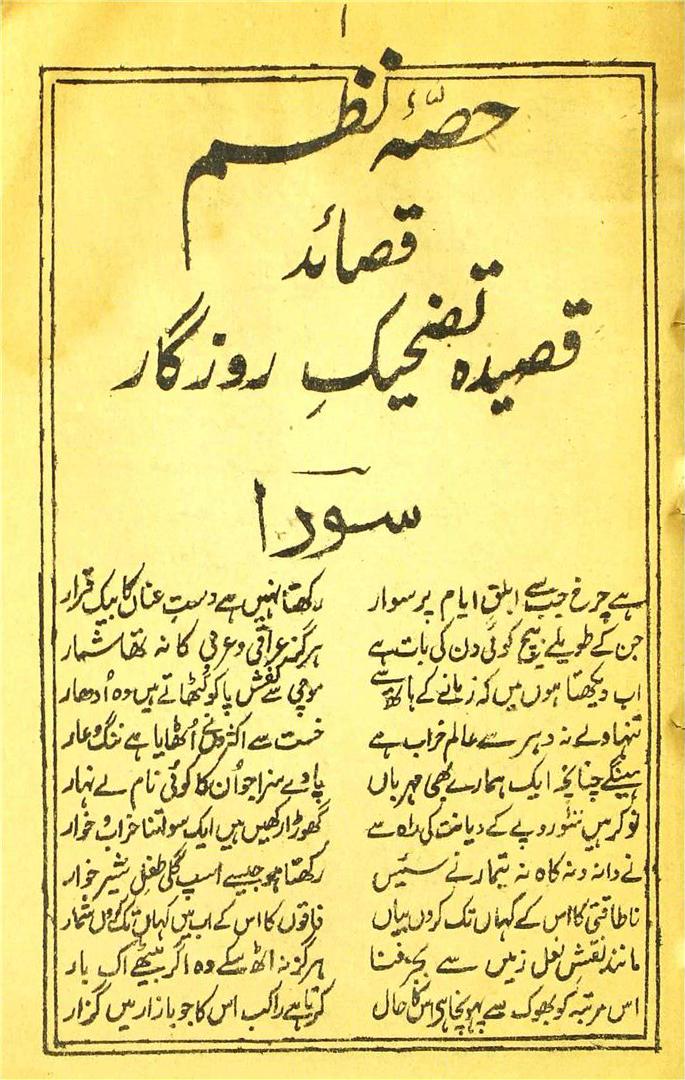 ۱
حصّۂ نظم
قصائد
قصیدہ تضحیکِ روزگار
سودا
ہے چرخ جب سے ابلقِ ایام پر سوار رکھتا نہیں ہے دستِ عناں کا بیک قرار
جن کے طویلے بیچ کوئی دن کی بات ہے ہرگز عراقی و عربی کا نہ تھا شمار
اب دیکھتا ہوں میں کہ زمانے کے ہاتھ سے موچی سے کفش پا کو گٹھاتے ہیں وہ اُدھار
تنہا ولے نہ دہر سے عالم خراب ہے خست سے اکثروں نے اُٹھایا ہے ننگ و عار
ہینگے چنانچہ ایک ہمارے بھی مہرباں پاوے سزا جو اُن کا کوئی نام لے نہار
نوکر ہیں سَو روپے کے دیانت کی راہ سے گھوڑا رکھیں ہیں ایک سو اتنا خراب و خوار
نے دانہ و نہ کاہ نہ تیمار نے سئیس رکھتا ہو جیسے اسپ گلی طفلِ شیر خوار
ناطاقتی کا اس کے کہاں تک کروں بیاں فاقوں کا اس کے اب میں کہاں تک کروں شمار
مانند نقش نعل زمیں سے بجز فنا ہرگز نہ اٹھ سکے وہ اگر بیٹھے اک بار
اس مرتبہ کو بھوک سے پہونچا ہے اس کا حال کرتا ہے راکب اس کا جو بازار میں گزار